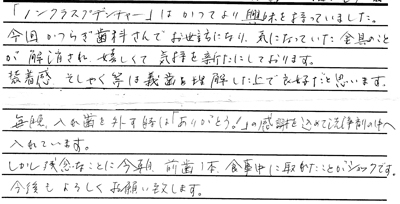 「ノンクラスプデンチャー」はかつてより興味を持っていました。
今回かつらぎ歯科さんでお世話になり、気になっていた金具のこと
が解消され、嬉しくて気持を新たにしております。
装着感、そしゃく等は義歯を理解した上で良好だと思います。
毎晩、入れ歯を外す時は「ありがとう!」の感謝を込めて洗浄剤の中へ
入れています。
しかし残念なことに今朝、前歯1本、食事中に取れたことがショックです。
今後もよろしくお願い致します。